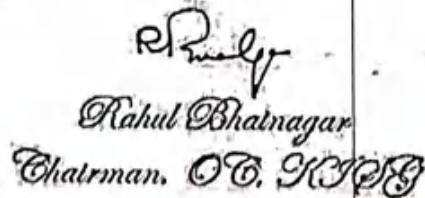 Rahul Bhatnagar
Chairman. OC. KISG